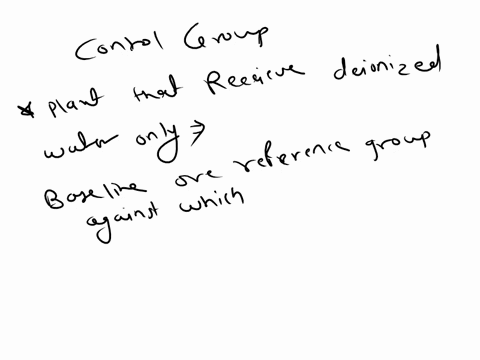 Control Group
* Plant that Receive deionized
water only ⇒
Baseline ore reference group
against which